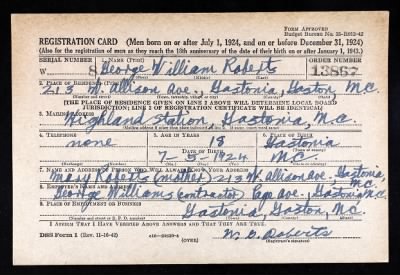 FORM APPROVED
Budget Bureau No. 33-R012-42
REGISTRATION CARD (Men born on or after July 1, 1924, and on or before December 31, 1924)
(Also for the registration of men as they reach the 18th anniversary of the date of their birth on or after January 1, 1943.)
SERIAL NUMBER 1. NAME (Print) ORDER NUMBER
W 8 George William Roberts 13867
(First) (Middle) (Last)
2. PLACE OF RESIDENCE (Print)
213 W. Allison Ave., Gastonia, Gaston, N.C.
[THE PLACE OF RESIDENCE GIVEN ON LINE 2 ABOVE WILL DETERMINE LOCAL BOARD
JURISDICTION; LINE 2 OF REGISTRATION CERTIFICATE WILL BE IDENTICAL]
3. MAILING ADDRESS
Highland Station, Gastonia, N.C.
[Mailing address if other than place indicated on line 2. If same, insert word same]
4. TELEPHONE 5. AGE IN YEARS 6. PLACE OF BIRTH
none 18 Gastonia
DATE OF BIRTH
7-5-1924 N.C.
7. NAME AND ADDRESS OF PERSON WHO WILL ALWAYS KNOW YOUR ADDRESS
Mary (mother) - 213 W. Allison Ave. Gastonia, N.C.
8. EMPLOYER'S NAME AND ADDRESS
George Williams (contractor) Page Ave. Gastonia, N.C.
9. PLACE OF EMPLOYMENT OR BUSINESS
Gastonia, Gaston, N.C.
I AFFIRM THAT I HAVE VERIFIED ABOVE ANSWERS AND THAT THEY ARE TRUE.
DSS Form 1 (Rev. 11-16-42) (OVER) Roberts
(Registrant's signature)